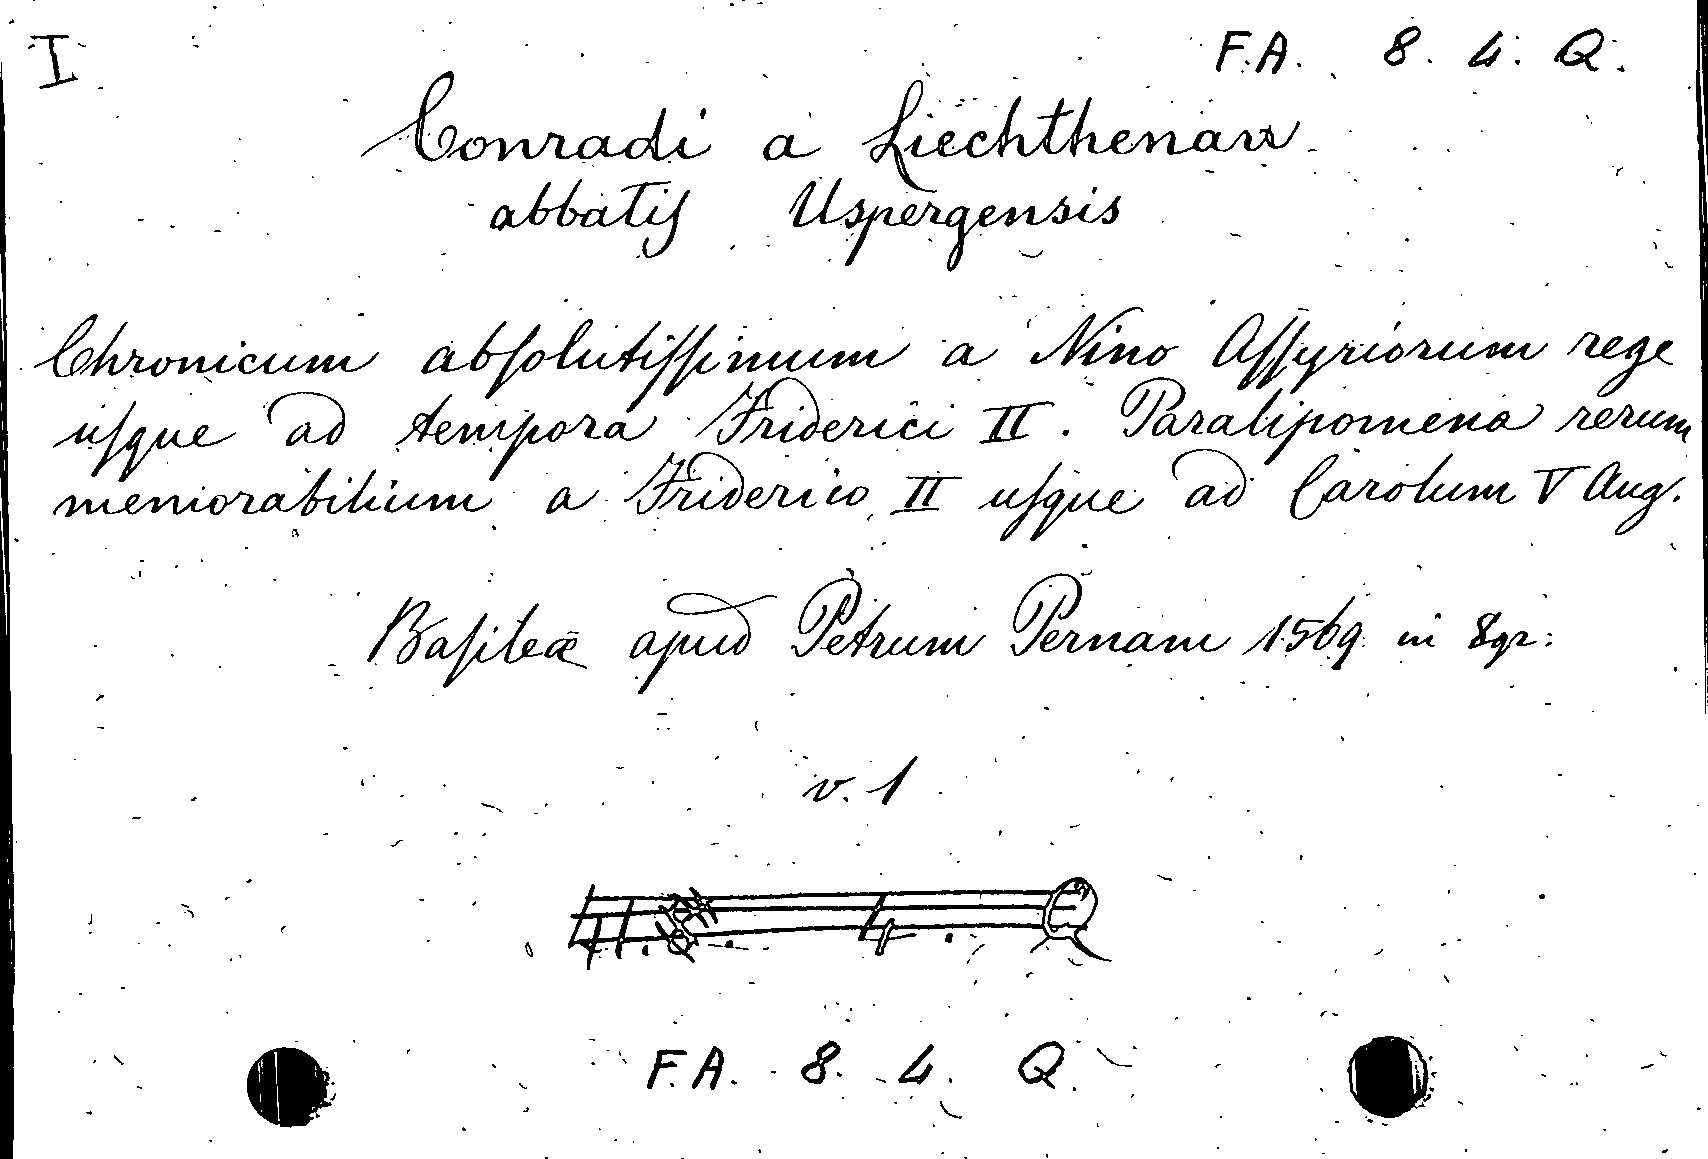 I F.A. 8. 4. Q.
Conradi a Liechthenau
abbatiſ Uspergensis
Chronicum abſolutiſſimum a Nino Aſſyriorum rege
uſque ad tempora Friderici II. Paralipomena rerum
memorabilium a Friderico II uſque ad Carolum V Aug.
Baſileæ apud Petrum Pernam 1569 in 8gr:
v. 1
F.A. 8. 4. Q.